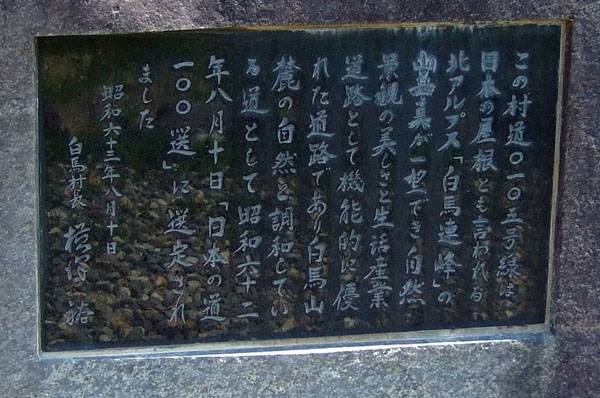 この村道〇一〇五号線は
日本の屋根とも言われる
北アルプス「白馬連峰」の
山岳美が一望でき自然
景観の美しさと生活産業
道路として機能的に優
れた道路であり白馬山
麓の自然と調和してい
る道として昭和六十二
年八月十日「日本の道
一〇〇選」に選定され
ました
昭和六十三年八月十日
白馬村長 横澤 裕